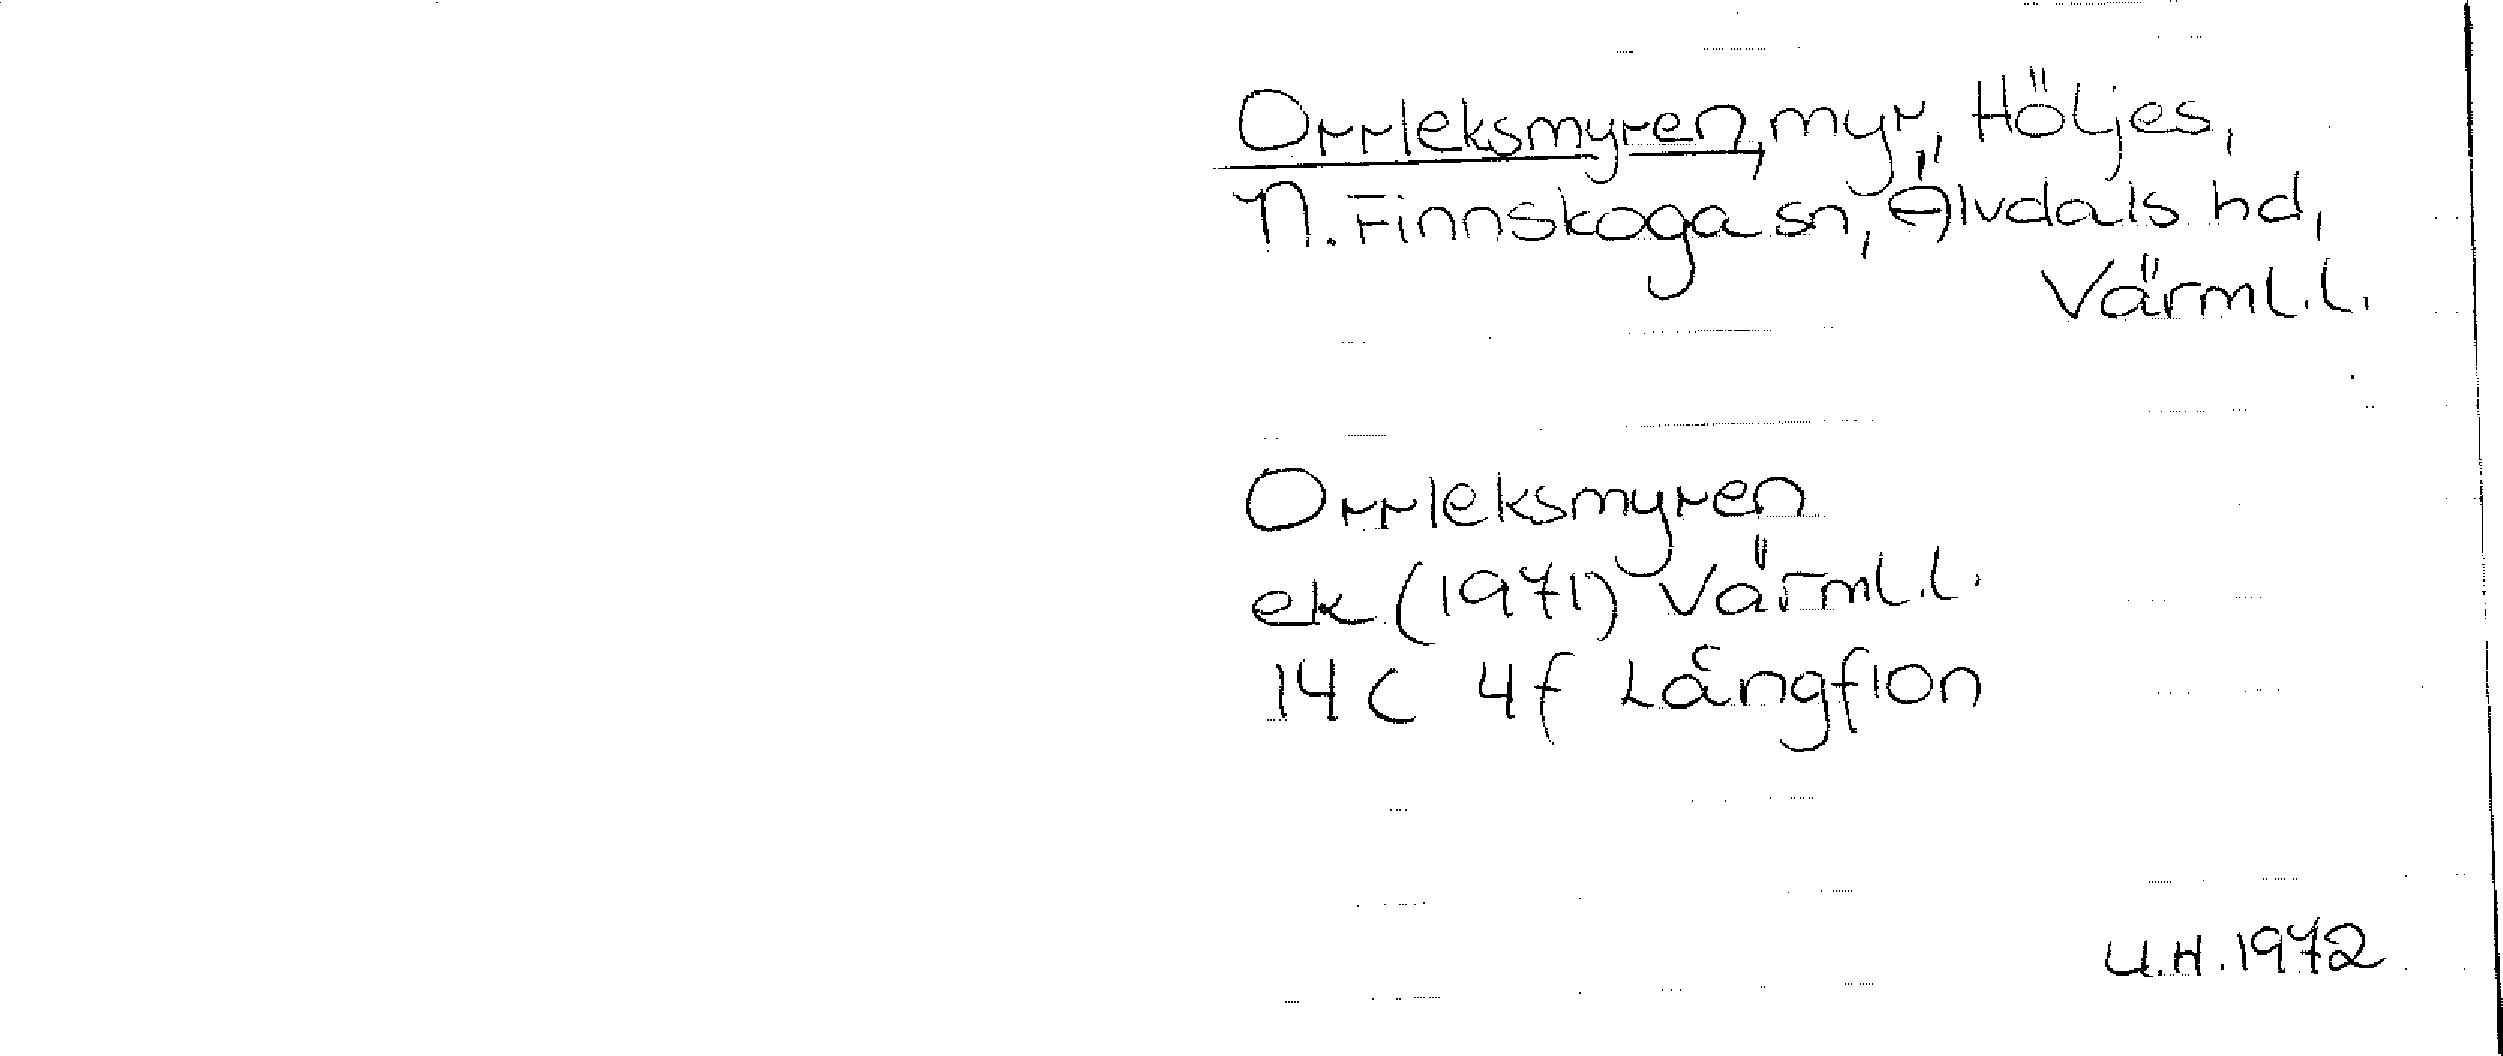 Orrleksmyren, myr, Höljes,
N. Finnskoga sn, Älvdals hd,
Värml.l.
Orrleksmyren
ek (1971) Värml.l.
14C 4f Långflon
U.H. 1972